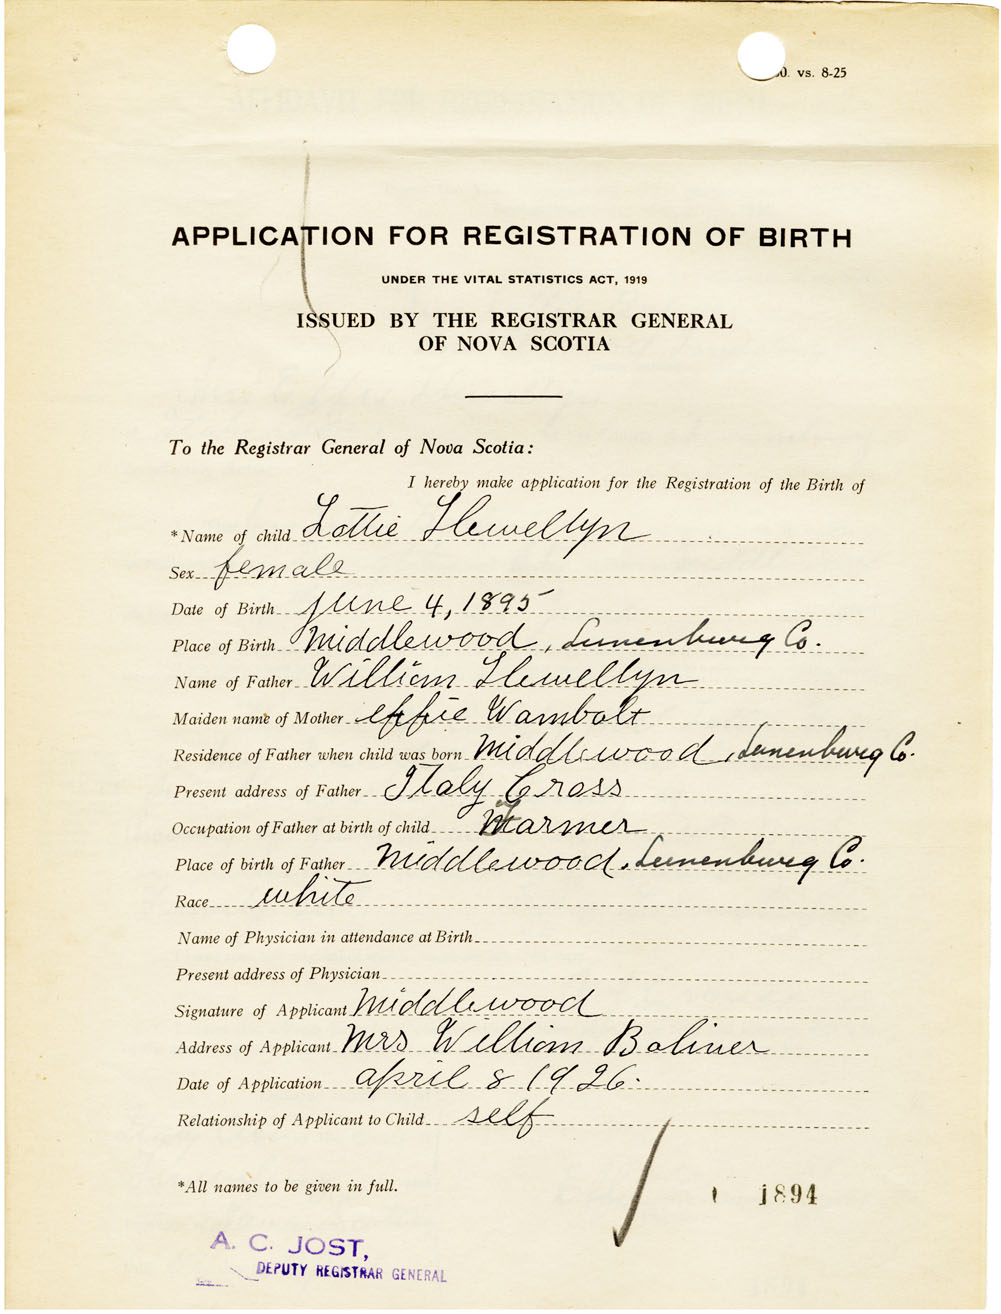 0. vs. 8-25
APPLICATION FOR REGISTRATION OF BIRTH
UNDER THE VITAL STATISTICS ACT, 1919
ISSUED BY THE REGISTRAR GENERAL
OF NOVA SCOTIA
To the Registrar General of Nova Scotia:
I hereby make application for the Registration of the Birth of
*Name of child Lottie Llewellyn
Sex female
Date of Birth June 4, 1895
Place of Birth Middlewood, Lunenburg Co.
Name of Father William Llewellyn
Maiden name of Mother effie Wambolt
Residence of Father when child was born Middlewood, Lunenburg Co.
Present address of Father Italy Cross
Occupation of Father at birth of child farmer
Place of birth of Father Middlewood, Lunenburg Co.
Race white
Name of Physician in attendance at Birth
Present address of Physician
Signature of Applicant Middlewood
Address of Applicant Mrs William Boliner
Date of Application april 8 1926.
Relationship of Applicant to Child self
*All names to be given in full.
1894
A. C. JOST,
DEPUTY REGISTRAR GENERAL